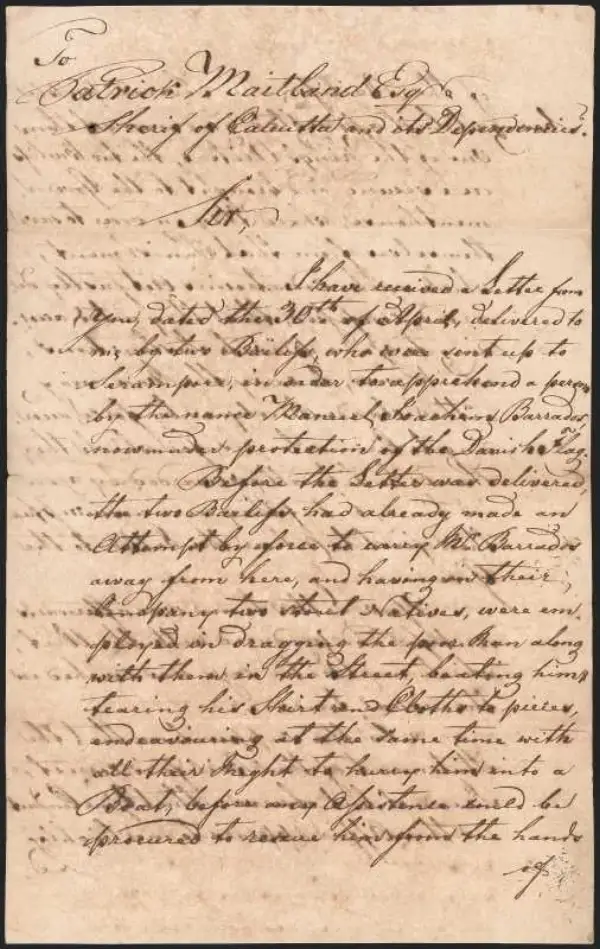 To
Patrick Maitland Esqr
Sherif of Calcutta and its Dependencies.
Sir,
I have received a Letter from
you, dated the 30th of April, delivered to
me by two Bailifs, who were sent up to
Serampore, in order to apprehend a person
by the name Manuel Joachim Barrados,
now under protection of the Danish Flag.
Before the Letter was delivered,
the two Bailifs had already made an
Attempt by force to carry Mr Barrados
away from here, and having in their
Company two stout Natives, were em
ployed in dragging the poor Man along
with them in the Street, beating him,
tearing his Shirt and Cloths to pieces,
endeavouring at the same time with
all their Might to hurry him into a
Boat, before any Assistence could be
procured to rescue him from the hands
of